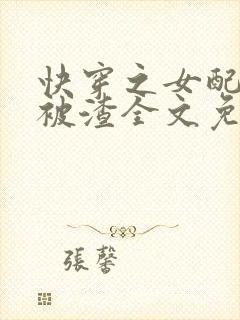 快穿之女配
被渣全文免
張馨